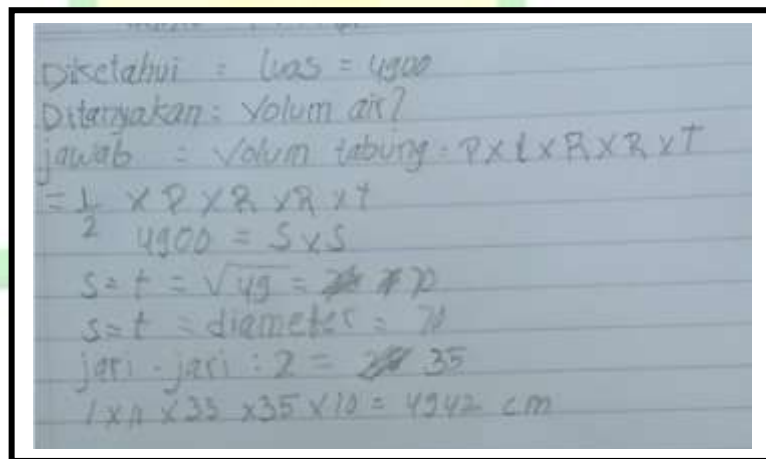 Diketahui = luas = 4900
Ditanyakan: Volum air?
jawab = Volum tabung = P x L x R x R x T
= 1/2 x P x R x R x t
4900 = S x S
S = t = √49 = 70
S = t = diameter = 70
jari-jari : 2 = 35
1 x 11 x 35 x 35 x 10 = 4942 cm